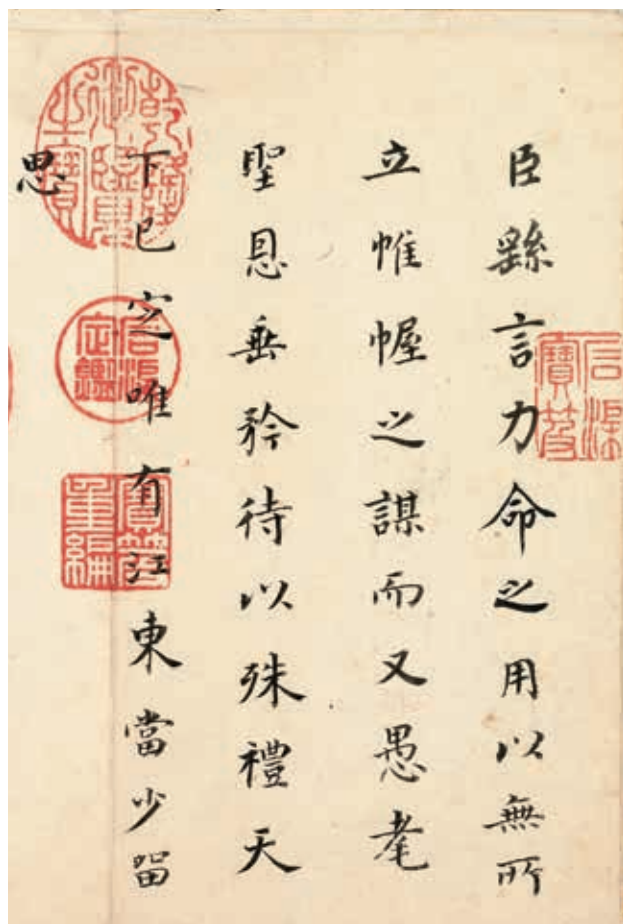 臣繇言力命之用以無所
立帷幄之謀而又愚耄
聖恩垂矜待以殊禮天
下已㝎唯有江東當少留
思
石渠寶笈
乾隆御覽之寶
石渠定鑑
寶笈重編